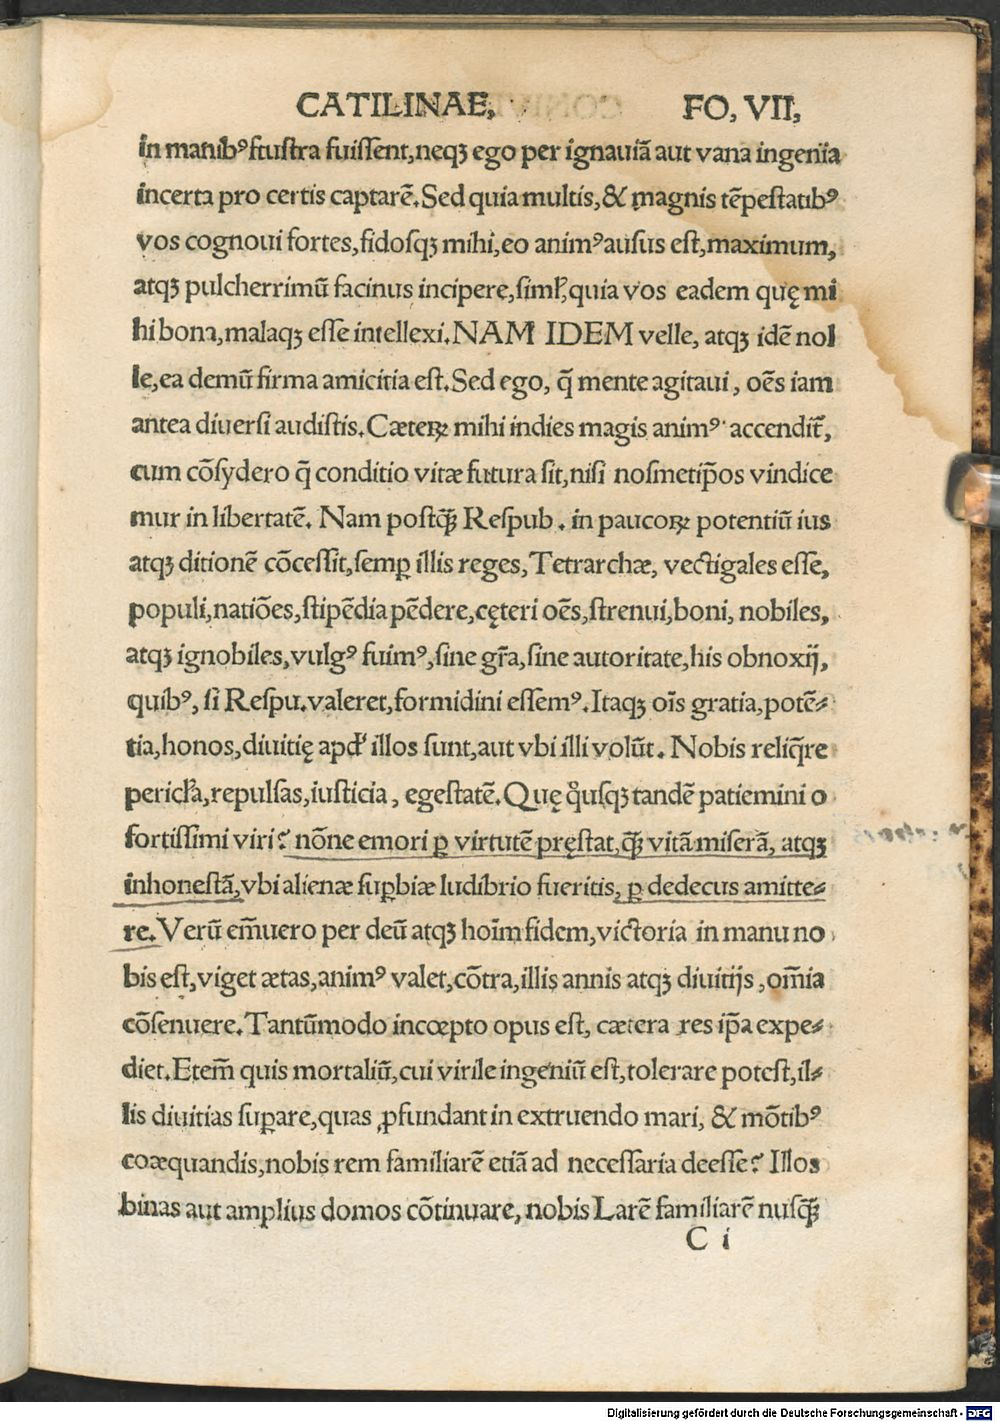 CATILINAE, FO, VII,
in manibꝰ frustra fuiſſent, neqꝫ ego per ignauiā aut vana ingenia
incerta pro certis captarē. Sed quia multis, & magnis tēpeſtatibꝰ
vos cognoui fortes, fidoſqꝫ mihi, eo animꝰ auſus eſt, maximum,
atqꝫ pulcherrimū facinus incipere, ſimƚ, quia vos eadem quę mi
hi bona, malaqꝫ eſſe intellexi. NAM IDEM velle, atqꝫ idē nol
le, ea demū firma amicitia eſt. Sed ego, q̄ mente agitaui, oēs iam
antea diuerſi audiſtis. Cæteꝝ mihi indies magis animꝰ accendit᷑,
cum cōſydero q̄ conditio vitæ futura ſit, niſi noſmetip̄os vindice
mur in libertatē. Nam poſtꝙ̄ Reſpub. in paucoꝝ potentiū ius
atqꝫ ditionē cōceſſit, ſemꝑ illis reges, Tetrarchæ, vectigales eſſe,
populi, natiōes, ſtipēdia pēdere, cęteri oēs, ſtrenui, boni, nobiles,
atqꝫ ignobiles, vulgꝰ fuimꝰ, ſine gr̄a, ſine autoritate, his obnoxij,
quibꝰ, ſi Reſpu. valeret, formidini eſſemꝰ. Itaqꝫ oīs gratia, potē⸗
tia, honos, diuitię apd' illos ſunt, aut vbi illi volūt. Nobis reliq̄re
pericƚa, repulſas, iuſticia, egeſtatē. Quę qͦuſqꝫ tandē patiemini o
fortiſſimi viri? nōne emori ꝑ virtutē pręſtat, ꝙ̄ vitā miſerā, atqꝫ
inhoneſtā, vbi alienæ ſuꝑbiæ ludibrio fueritis, ꝑ dedecus amitte⸗
re. Verū em̄uero per deū atqꝫ hoīm fidem, victoria in manu no
bis eſt, viget ætas, animꝰ valet, cōtra, illis annis atqꝫ diuitijs, om̄ia
cōſenuere. Tantūmodo incœpto opus eſt, cætera res ip̄a expe⸗
diet. Etem̄ quis mortaliū, cui virile ingeniū eſt, tolerare poteſt, il⸗
lis diuitias ſuꝑare, quas ꝓfundant in extruendo mari, & mōtibꝰ
coæquandis, nobis rem familiarē etiā ad neceſſaria deeſſe? Illos
binas aut amplius domos cōtinuare, nobis Larē familiarē nuſꝙ̄
C i
Digitalisierung gefördert durch die Deutsche Forschungsgemeinschaft - DFG